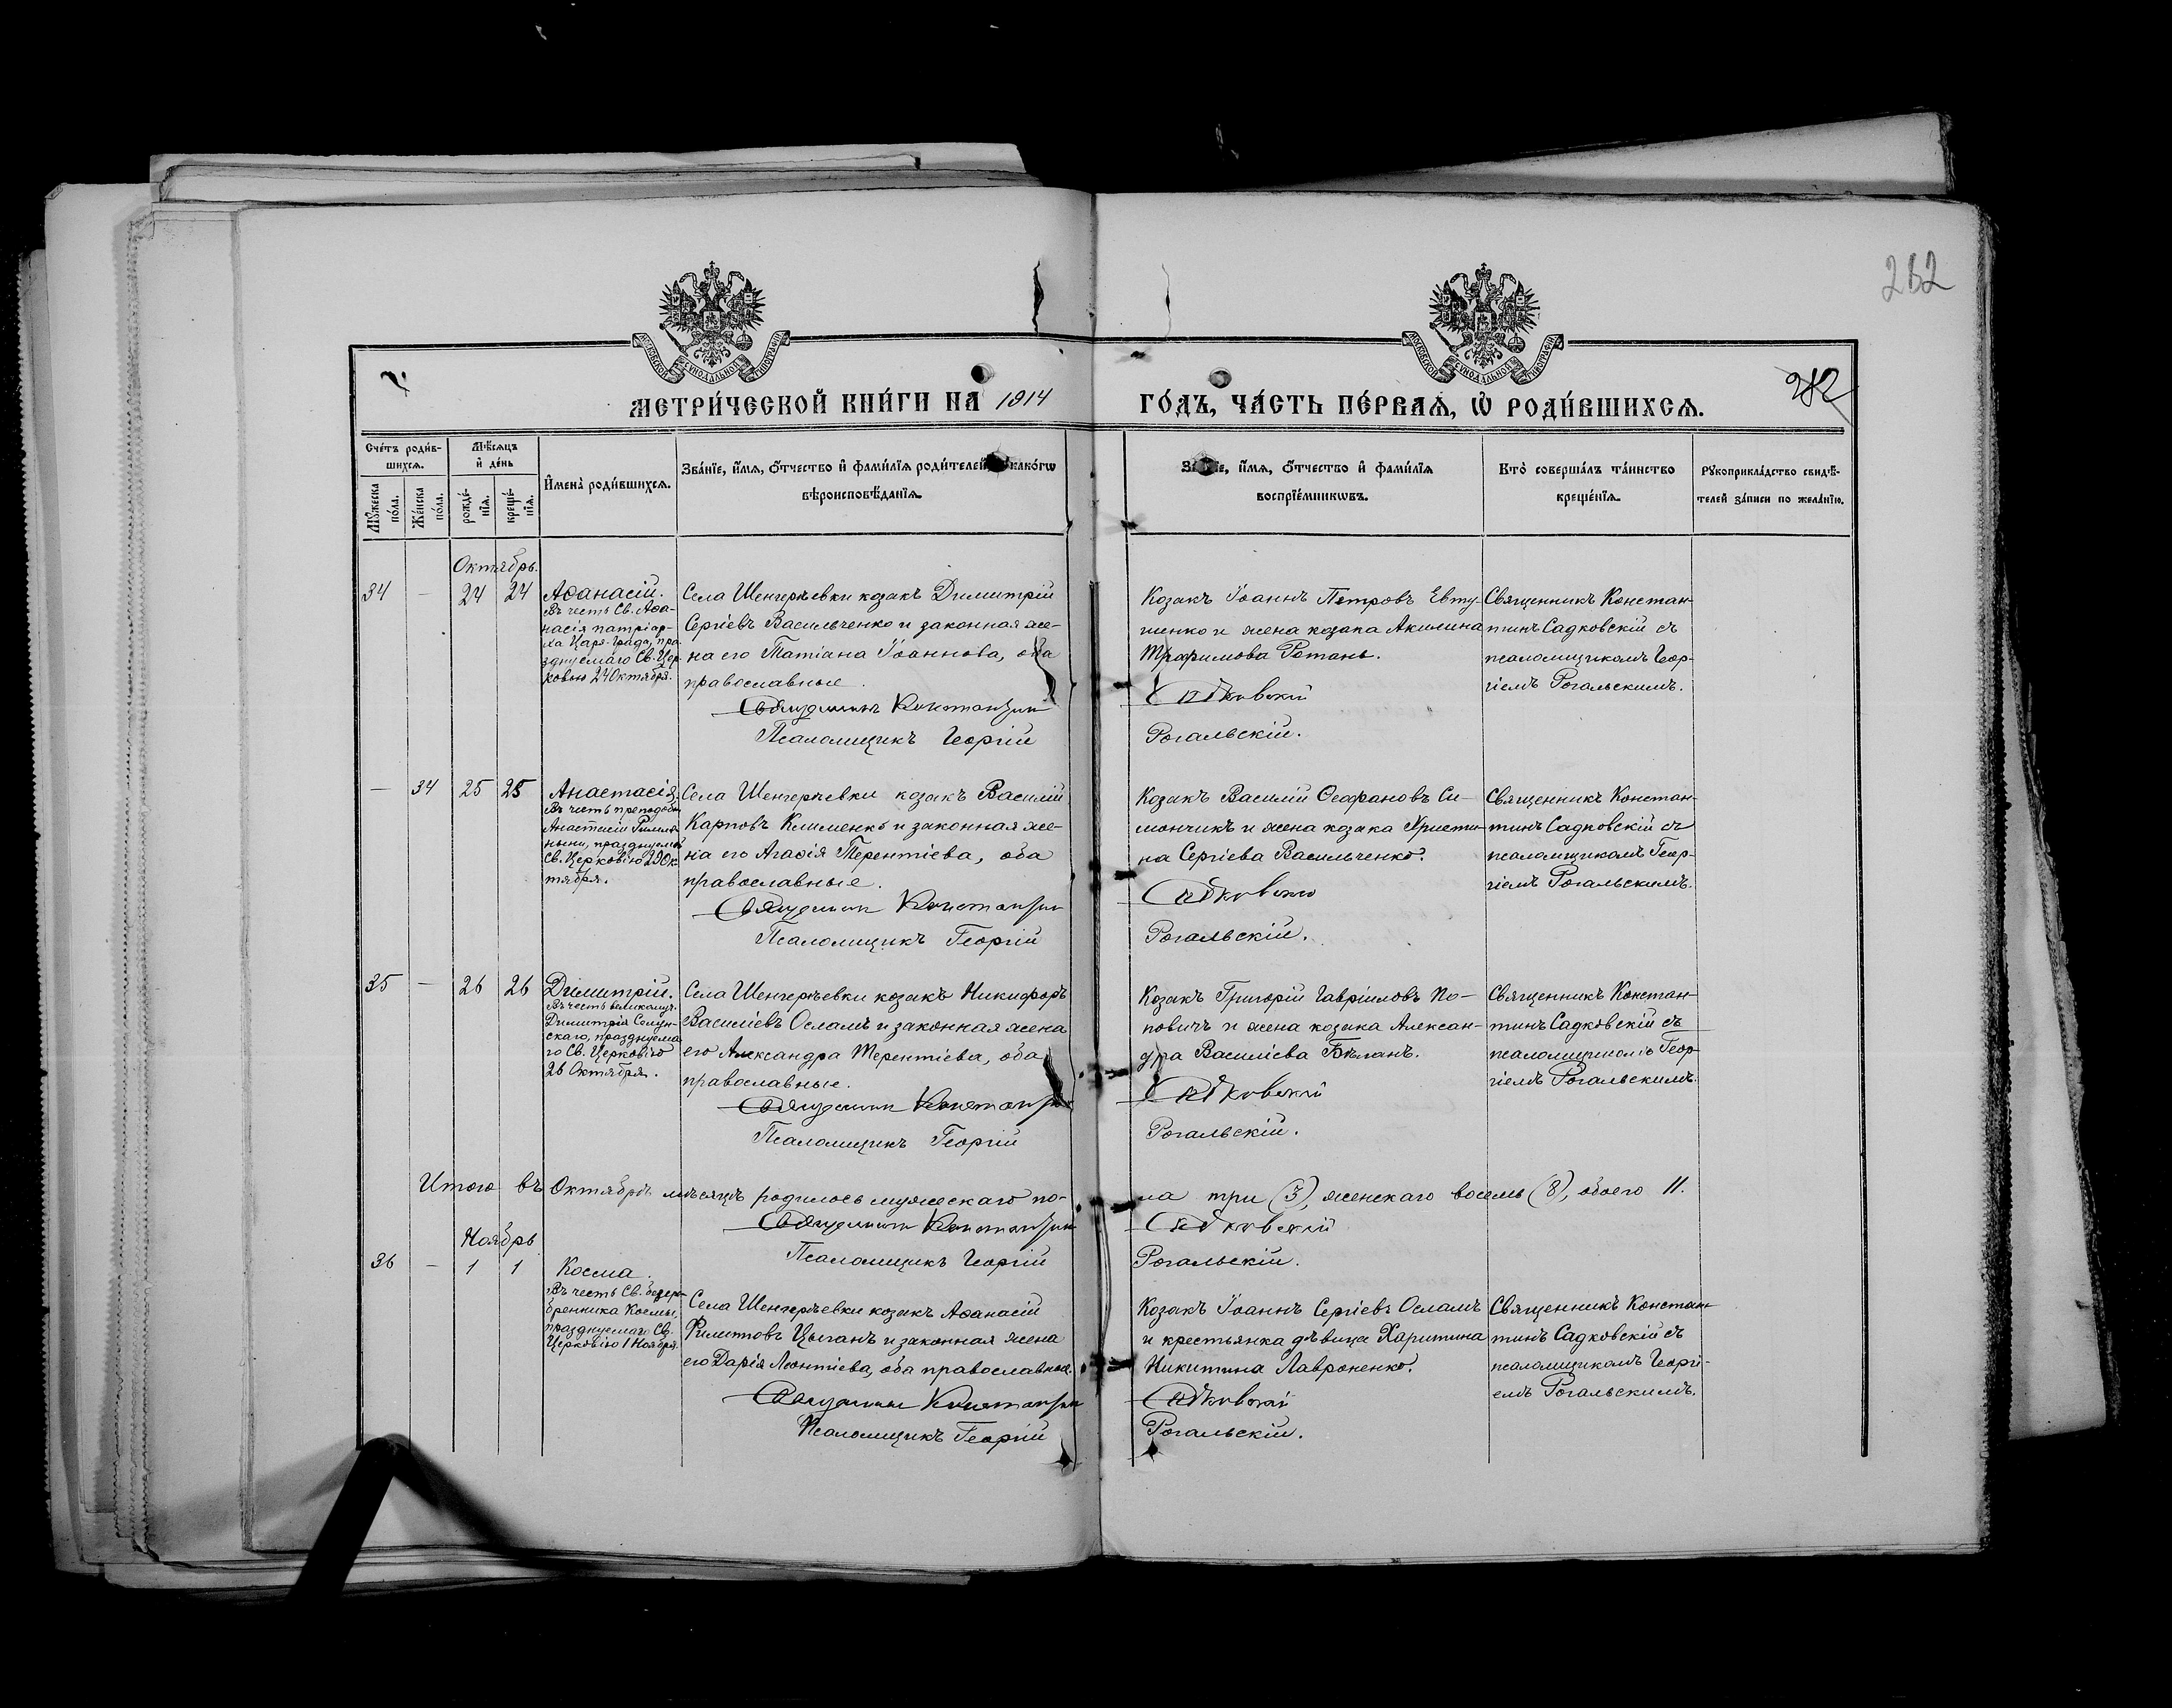 262
МОСКОВСКОЙ СѴНОДАЛЬНОЙ ТИПОГРАФІИ
МОСКОВСКОЙ СѴНОДАЛЬНОЙ ТИПОГРАФІИ
МЕТРИ́ЧЕСКОЙ КНИ́ГИ НА 1914
ГО́ДЪ, ЧА́СТЬ ПЕ́РВАѦ, Ѡ҆ РОДИ́ВШИХСѦ.
Сче́тъ роди́в-
шихсѧ.
Мѣ́сѧцъ
и҆ де́нь
Мꙋ́жеска
по́ла.
Же́нска
по́ла.
рожде́-
нїѧ.
креще́-
нїѧ.
И҆мена̀ роди́вшихсѧ.
Зва́нїе, и҆́мѧ, ѻ҆́тчество и҆ фами́лїѧ роди́телей како́гѡ
вѣроисповѣ́данїѧ.
и҆́мѧ, ѻ҆́тчество и҆ фами́лїѧ
воспрїе́мникѡвъ.
Кто̀ соверша́лъ та́инство
креще́нїѧ.
Рꙋкоприкла́дство свидѣ́-
телей за́писи по жела́нїю.
Октябрь.
34 — 24 24 Аѳанасій.
Въ честь Св. Аѳа-
насія патріар-
ха Царя-града, пра-
зднуемаго Св. Цер-
ковью 24 Октября.
Села Шенгерѣевки козакъ Димитрій
Сергіевъ Васильченко и законная же-
на его Татіана Іоаннова, оба
православные.
Священникъ Константин
Псаломщикъ Георгій
Козакъ Іоаннъ Петровъ Евту-
шенко и жена козака Акилина
Трофимова Ротань.
Садковскій
Рогальскій.
Священникъ Констан-
тинъ Садковскій съ
псаломщикомъ Геор-
гіемъ Рогальскимъ.
— 34 25 25 Анастасія.
Въ честь преподобн.
Анастасіи Римля-
ныни, празднуемой
Св. Церковію 29 Ок-
тября.
Села Шенгерѣевки козакъ Василій
Карповъ Клименко и законная же-
на его Агаѳія Терентіева, оба
православные.
Священник Константин
Псаломщикъ Георгій
Козакъ Василій Ѳеофановъ Си-
мончикъ и жена козака Христи-
на Сергіева Васильченко.
Садковскій
Рогальскій.
Священникъ Констан-
тинъ Садковскій съ
псаломщикомъ Геор-
гіемъ Рогальскимъ.
35 — 26 26 Димитрій.
Въ честь великомуч.
Димитрія Солун-
скаго, празднуема-
го Св. Церковію
26 Октября.
Села Шенгерѣевки козакъ Никифоръ
Василіевъ Осламъ и законная жена
его Александра Терентіева, оба
православные.
Священник Константин
Псаломщикъ Георгій
Козакъ Григорій Гавріиловъ По-
повичъ и жена козака Алексан-
дра Василіева Бѣланъ.
Садковскій
Рогальскій.
Священникъ Констан-
тинъ Садковскій съ
псаломщикомъ Геор-
гіемъ Рогальскимъ.
Итого въ Октябрѣ мѣсяцѣ родилось мужескаго по-
ла три (3), женскаго восемь (8), обоего 11.
Священник Константин
Садковскій
Псаломщикъ Георгій
Рогальскій.
Ноябрь
36 — 1 1 Косма.
Въ честь Св. безсре-
бренника Космы,
празднуемаго Св.
Церковію 1 Ноября.
Села Шенгерѣевки козакъ Аѳанасій
Филиповъ Цыганъ и законная жена
его Дарія Леонтіева, оба православные.
Священник Константин
Псаломщикъ Георгій
Козакъ Іоаннъ Сергіевъ Осламъ
и крестьянка дѣвица Харитина
Никитина Лавроненко.
Садковскій
Рогальскій.
Священникъ Констан-
тинъ Садковскій съ
псаломщикомъ Георгі-
емъ Рогальскимъ.